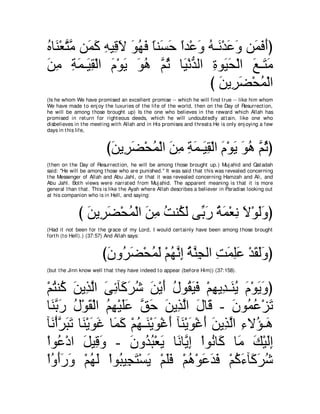 (أَفَمَن وَعَدْنَـهُ وَعْداً حَسَناً فَهُوَ لاَقِيهِ كَمَن مَّتَّعْنَاهُ
مَتَـعَ الْحَيَوةِ الدُّنْيَا ثُمَّ هُوَ يَوْمَ الْقِيَـمَةِ مِنَ
الْمُحْضَرِينَ )
(Is he whom We have promised an excellent promise -- which he will find true -- like him whom We have made to enjoy the luxuries of the life of the world, then on the Day of Resurrection, he will be among those brought up) Is the one who believes in the reward which Allah has promised in return for righteous deeds, which he will undoubtedly attain, like one who disbelieves in the meeting with Allah and in His promises and threats He is only enjoying a few days in this life,
(ثُمَّ هُوَ يَوْمَ الْقِيَـمَةِ مِنَ الْمُحْضَرِينَ)
(then on the Day of Resurrection, he will be among those brought up.) Mujahid and Qatadah said: "He will be among those who are punished." It was said that this was revealed concerning the Messenger of Allah and Abu Jahl, or that it was revealed concerning Hamzah and Ali, and Abu Jahl. Both views were narrated from Mujahid. The apparent meaning is that it is more general than that. This is like the Ayah where Allah describes a believer in Paradise looking out at his companion who is in Hell, and saying:
(وَلَوْلاَ نِعْمَةُ رَبِّى لَكُنتُ مِنَ الْمُحْضَرِينَ )
(Had it not been for the grace of my Lord, I would certainly have been among those brought forth (to Hell).) (37:57) And Allah says:
(وَلَقَدْ عَلِمَتِ الْجِنَّةُ إِنَّهُمْ لَمُحْضَرُونَ)
(but the Jinn know well that they have indeed to appear (before Him)) (37:158).
(وَيَوْمَ يُنَـدِيهِمْ فَيَقُولُ أَيْنَ شُرَكَآئِىَ الَّذِينَ كُنتُمْ
تَزْعُمُونَ - قَالَ الَّذِينَ حَقَّ عَلَيْهِمُ الْقَوْلُ رَبَّنَا
هَـؤُلاءِ الَّذِينَ أَغْوَيْنَآ أَغْوَيْنَـهُمْ كَمَا غَوَيْنَا تَبَرَّأْنَآ
إِلَيْكَ مَا كَانُوا إِيَّانَا يَعْبُدُونَ - وَقِيلَ ادْعُوا
شُرَكَآءَكُمْ فَدَعَوْهُمْ فَلَمْ يَسْتَجِيبُوا لَهُمْ وَرَأَوُا